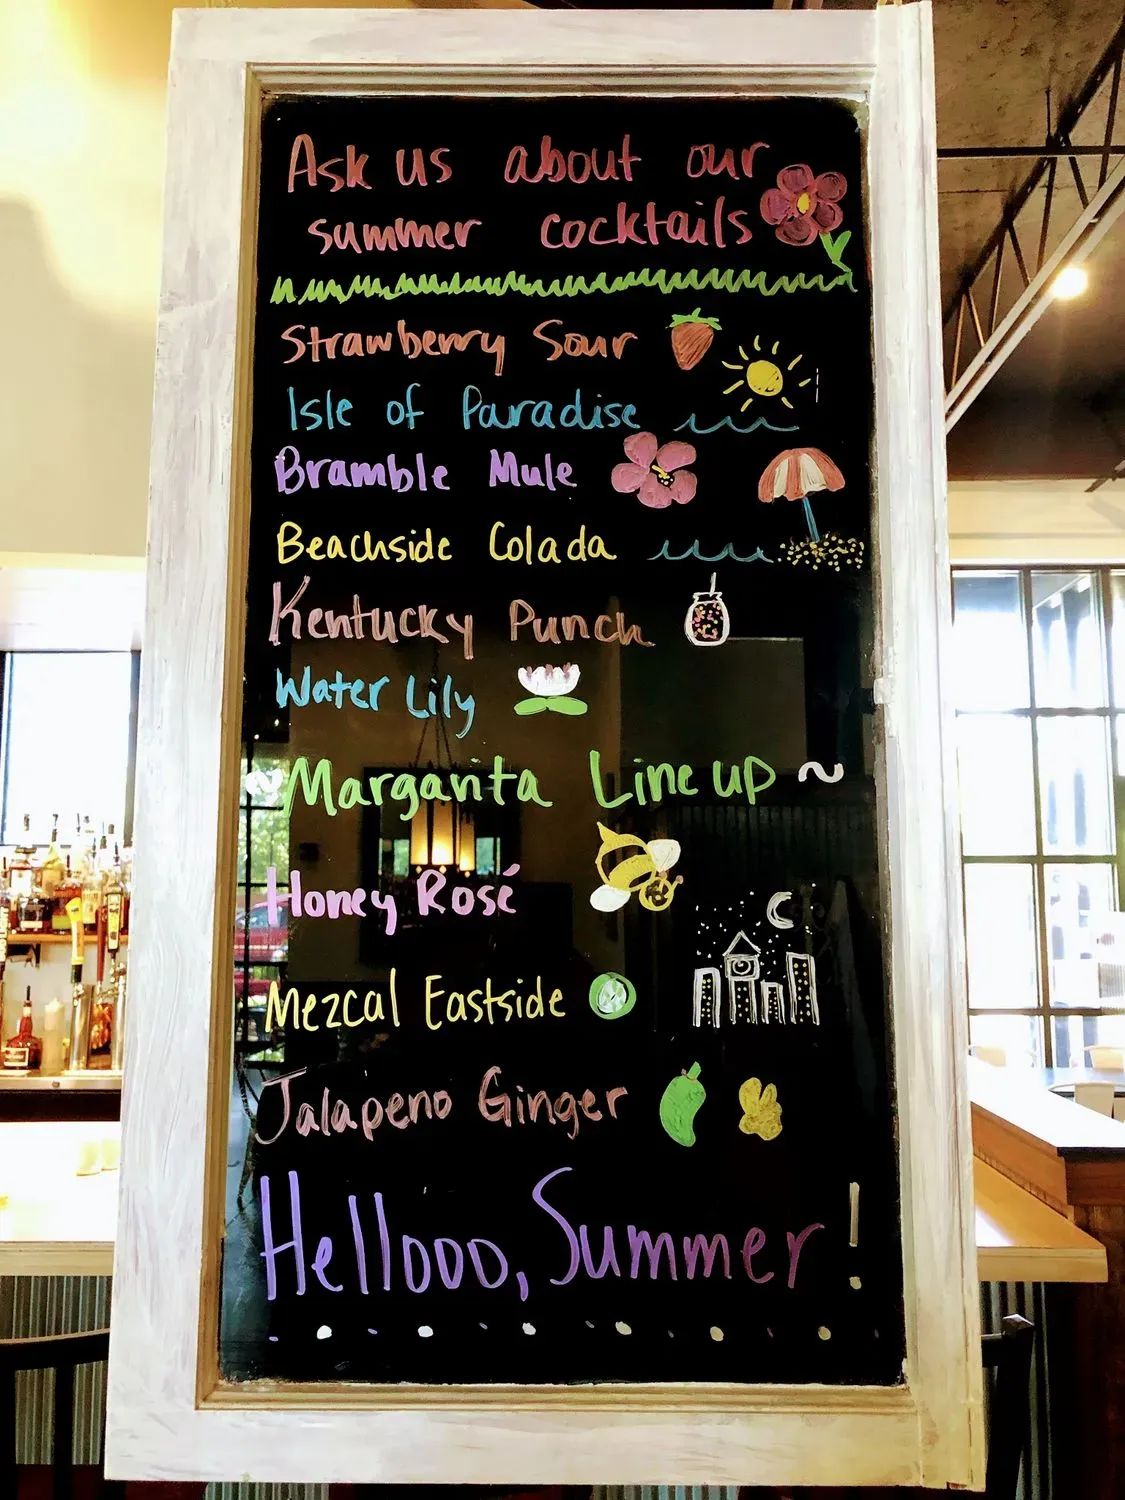 Ask us about our
summer cocktails
Strawberry Sour
Isle of Paradise
Bramble Mule
Beachside Colada
Kentucky Punch
Water Lily
~Margarita Line up ~
Honey Rosé
Mezcal Eastside
Jalapeno Ginger
Hellooo, Summer!